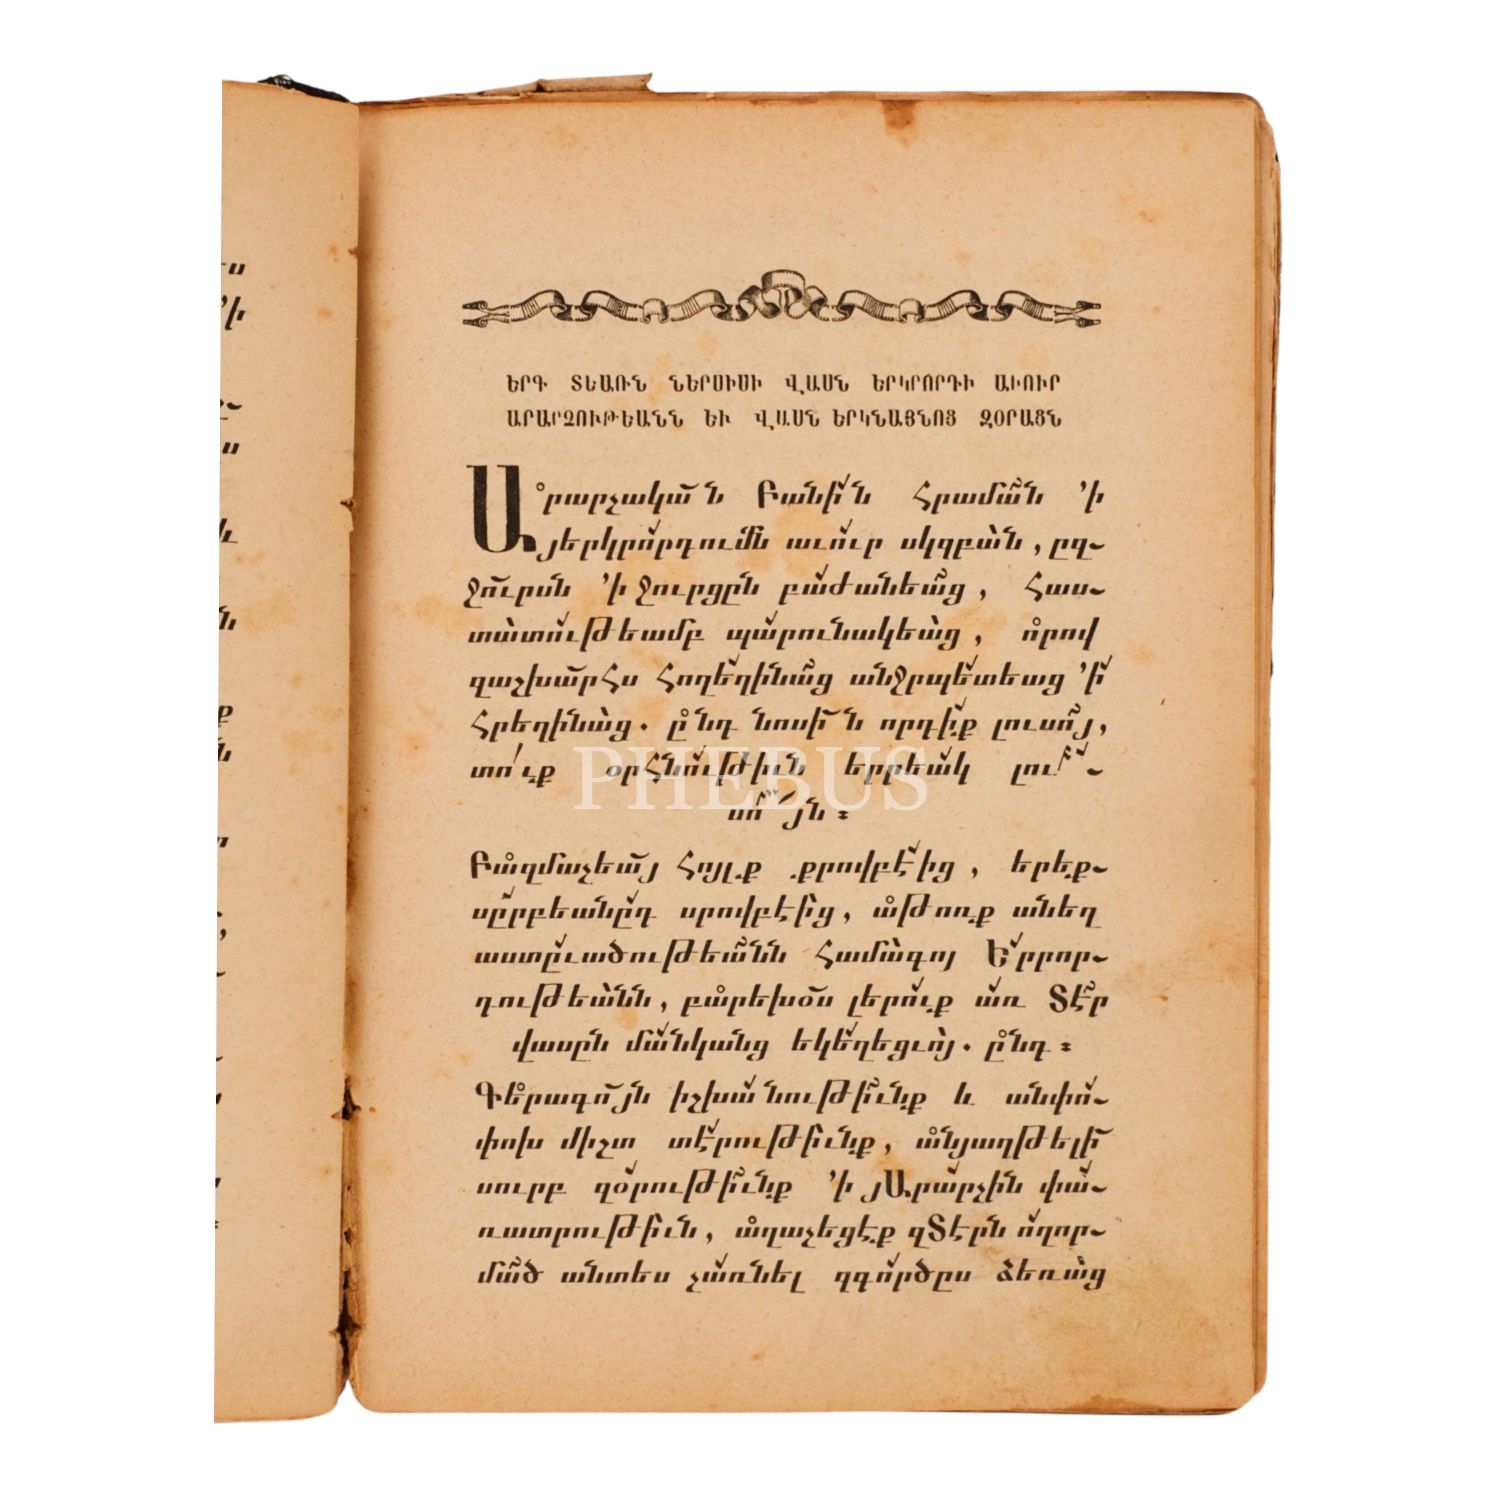 ԵՐԳ ՏԵԱՌՆ ՆԵՐՍԻՍԻ ՎԱՍՆ ԵՐԿՐՈՐԴԻ ԱՒՈՒՐ
ԱՐԱՐՉՈՒԹԵԱՆՆ ԵՒ ՎԱՍՆ ԵՐԿՆԱՅՆՈՑ ԶՕՐԱՑՆ
Առարչական Բանին հրաման ՚ի
յերկրորդումն աւուր սկզբան, ըզ-
ջուրսն ՚ի ջուրցըն բաժանեաց, հաս-
տատութեամբ պարունակեաց, որով
զաշխարհս հողեղինաց անջրպետեաց ՚ի
հրեղինաց. ընդ նոսին որդիք լուսոյ,
տուք օրհնութիւն երրեակ լու-
սոյն։
Բազմաչեայ հոյլք քրովբէից, երեք-
սըրբեանըդ սրովբէից, աթոռք անեղ
աստըւածութեանն համագոյ Երրոր-
դութեանն, բարեխօս լերուք առ Տէր
վասըն մանկանց եկեղեցւոյ. ընդ։
Գերագոյն իշխանութիւնք և անփո-
փոխ միշտ տէրութիւնք, անյաղթելի
սուրբ զօրութիւնք ՚ի յԱրարչին փա-
ռատրութիւն, աղաչեցէք զՏէրն ողոր-
մած անտես չառնել զգործըս ձեռաց
PHEBUS